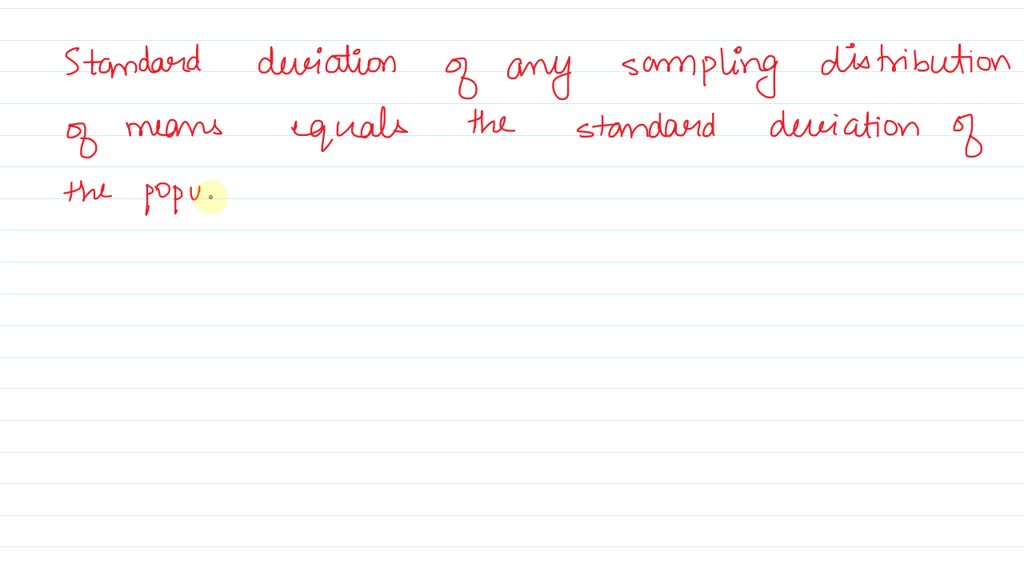 Standard deviation of any sampling distribution
of means equals the standard deviation of
the popu